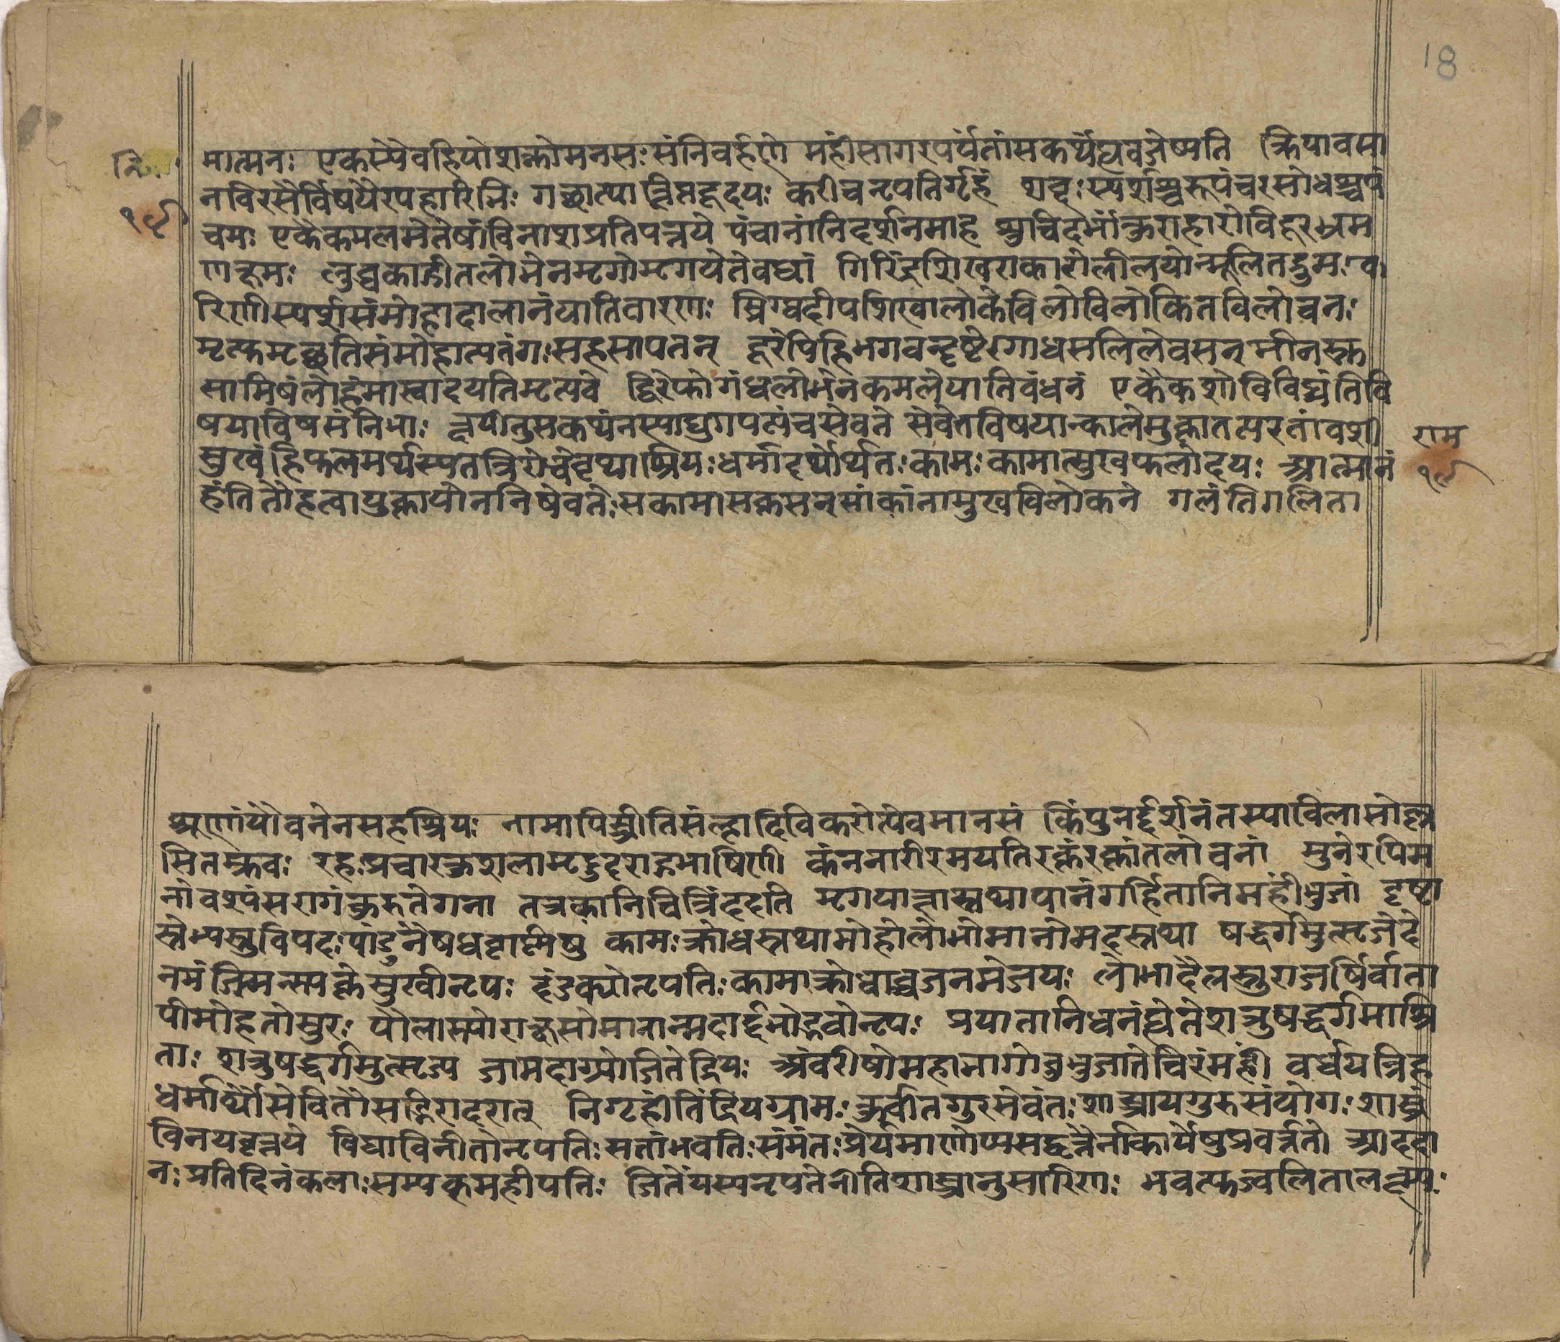 18
मात्मनः एकस्यैवहियोशक्तोमनसः संनिवर्हणे महींसागरपर्यंतांसकथंह्यवजेष्यति क्रियावसा
नविरसैर्विषयैरपहारिनिः गछात्याक्षिप्तहृदयः करीवनृपतिर्गृहं शब्दःस्पर्शश्चरूपंचरसोधश्चपं
चमः एकैकमलमेतेषांविनाशप्रतिपत्तये पंचानांनिदर्शनमाह शुचिदर्भांकुराहारोविदूरभ्रम
णक्षमः लुब्धकाद्गीतलोभेनमृगोमृगयतेवधां गिरिंद्रशिखराकारोलीलयोन्मूलितद्रुमः क
रिणीस्पर्शसंमोहादालानंयातिवारणः स्निग्धदीपशिखालोकैविलोविलोकितविलोचनः
मृत्युमृछतिसंमोहात्पतंगः सहसापतन् दूरेपिहिभगवन्दृष्टेरगाधसलिलेवसन् मीनस्तु
सामिषंलोहंमास्वादयतिमृत्यवे द्विरेफोगंधलोभेनकमलेयातिबंधनं एकैकशोविविघ्नंतिवि
षयाविषसंनिभाः क्षयीनुसकथंनस्याद्युगपत्पंचसेवने सेवेतविषयान्कालेमुक्त्वातत्परतांवशी राम
सुखंहिफलमर्थस्यतन्निरोधेवृथाश्रियः धर्मादर्थोर्थतः कामः कामात्सुखफलोदयः आत्मानं १८
हंतितोहत्वायुक्त्यायोननिषेवते सकामासक्तसन्सांकांनामुखविलोकने गलंतिगलिता
श्रूणांयौवनेनसहश्रियः नामापिस्त्रीतिसंल्हादिविकरोत्येवमानसं किंपुनर्दर्शनंतस्याविलासोल्ल
सितभ्रुवः रहः प्रचारकुशलामृदुगद्गदभाषिणी कंननारीरमयतिरक्तंरक्तांतलोचना मुनेरपिम
नोवश्यंसरागंकुरुतेगना मृगयाक्षास्तथापानंगर्हितानिमहीभुजां दृष्टा
स्तेभ्यस्तुविपदः पांडुनैषधवृष्णिषु कामः क्रोधस्तथामोहोलोभोमानोमदस्तथा षड्वर्गमुत्सृजेदे
नमस्मिन्त्यक्तेसुखीनृपः दंडक्योनृपतिः कामाक्रोधाच्चजनमेजयः लोभादैलस्तुराजर्षिर्वाता
पीमोहतोसुरः पौलास्त्योराक्षसोमानान्मदाद्दंभोद्भवोनृपः प्रयातानिधनंह्येतेशत्रुषड्वर्गमाश्रि
ताः शत्रुषड्वर्गमुत्सृज्य जामदग्न्योजितेंद्रियः अंबरीषोमहाभागोबुभुजातेचिरंमहीं वर्धयन्निह
धर्मार्थौसेवितौसद्भिरादरात् निगृहीतिंद्रियग्रामः कुर्वीतगुरुसेवनं शास्त्रायगुरुसंयोगः शास्त्रं
विनयवृत्तये विद्याविनीतोनृपतिः सतांभवतिसंमतः प्रेर्यमाणोप्यसद्वृत्तैर्नाकार्येषुप्रवर्तते आददा
नः प्रतिदिनंकलाः सम्यक्महीपतिः जितेंद्रयस्यनृपतेर्नीतिशास्त्रानुसारिणः भवत्युज्वलितालक्ष्म्यः